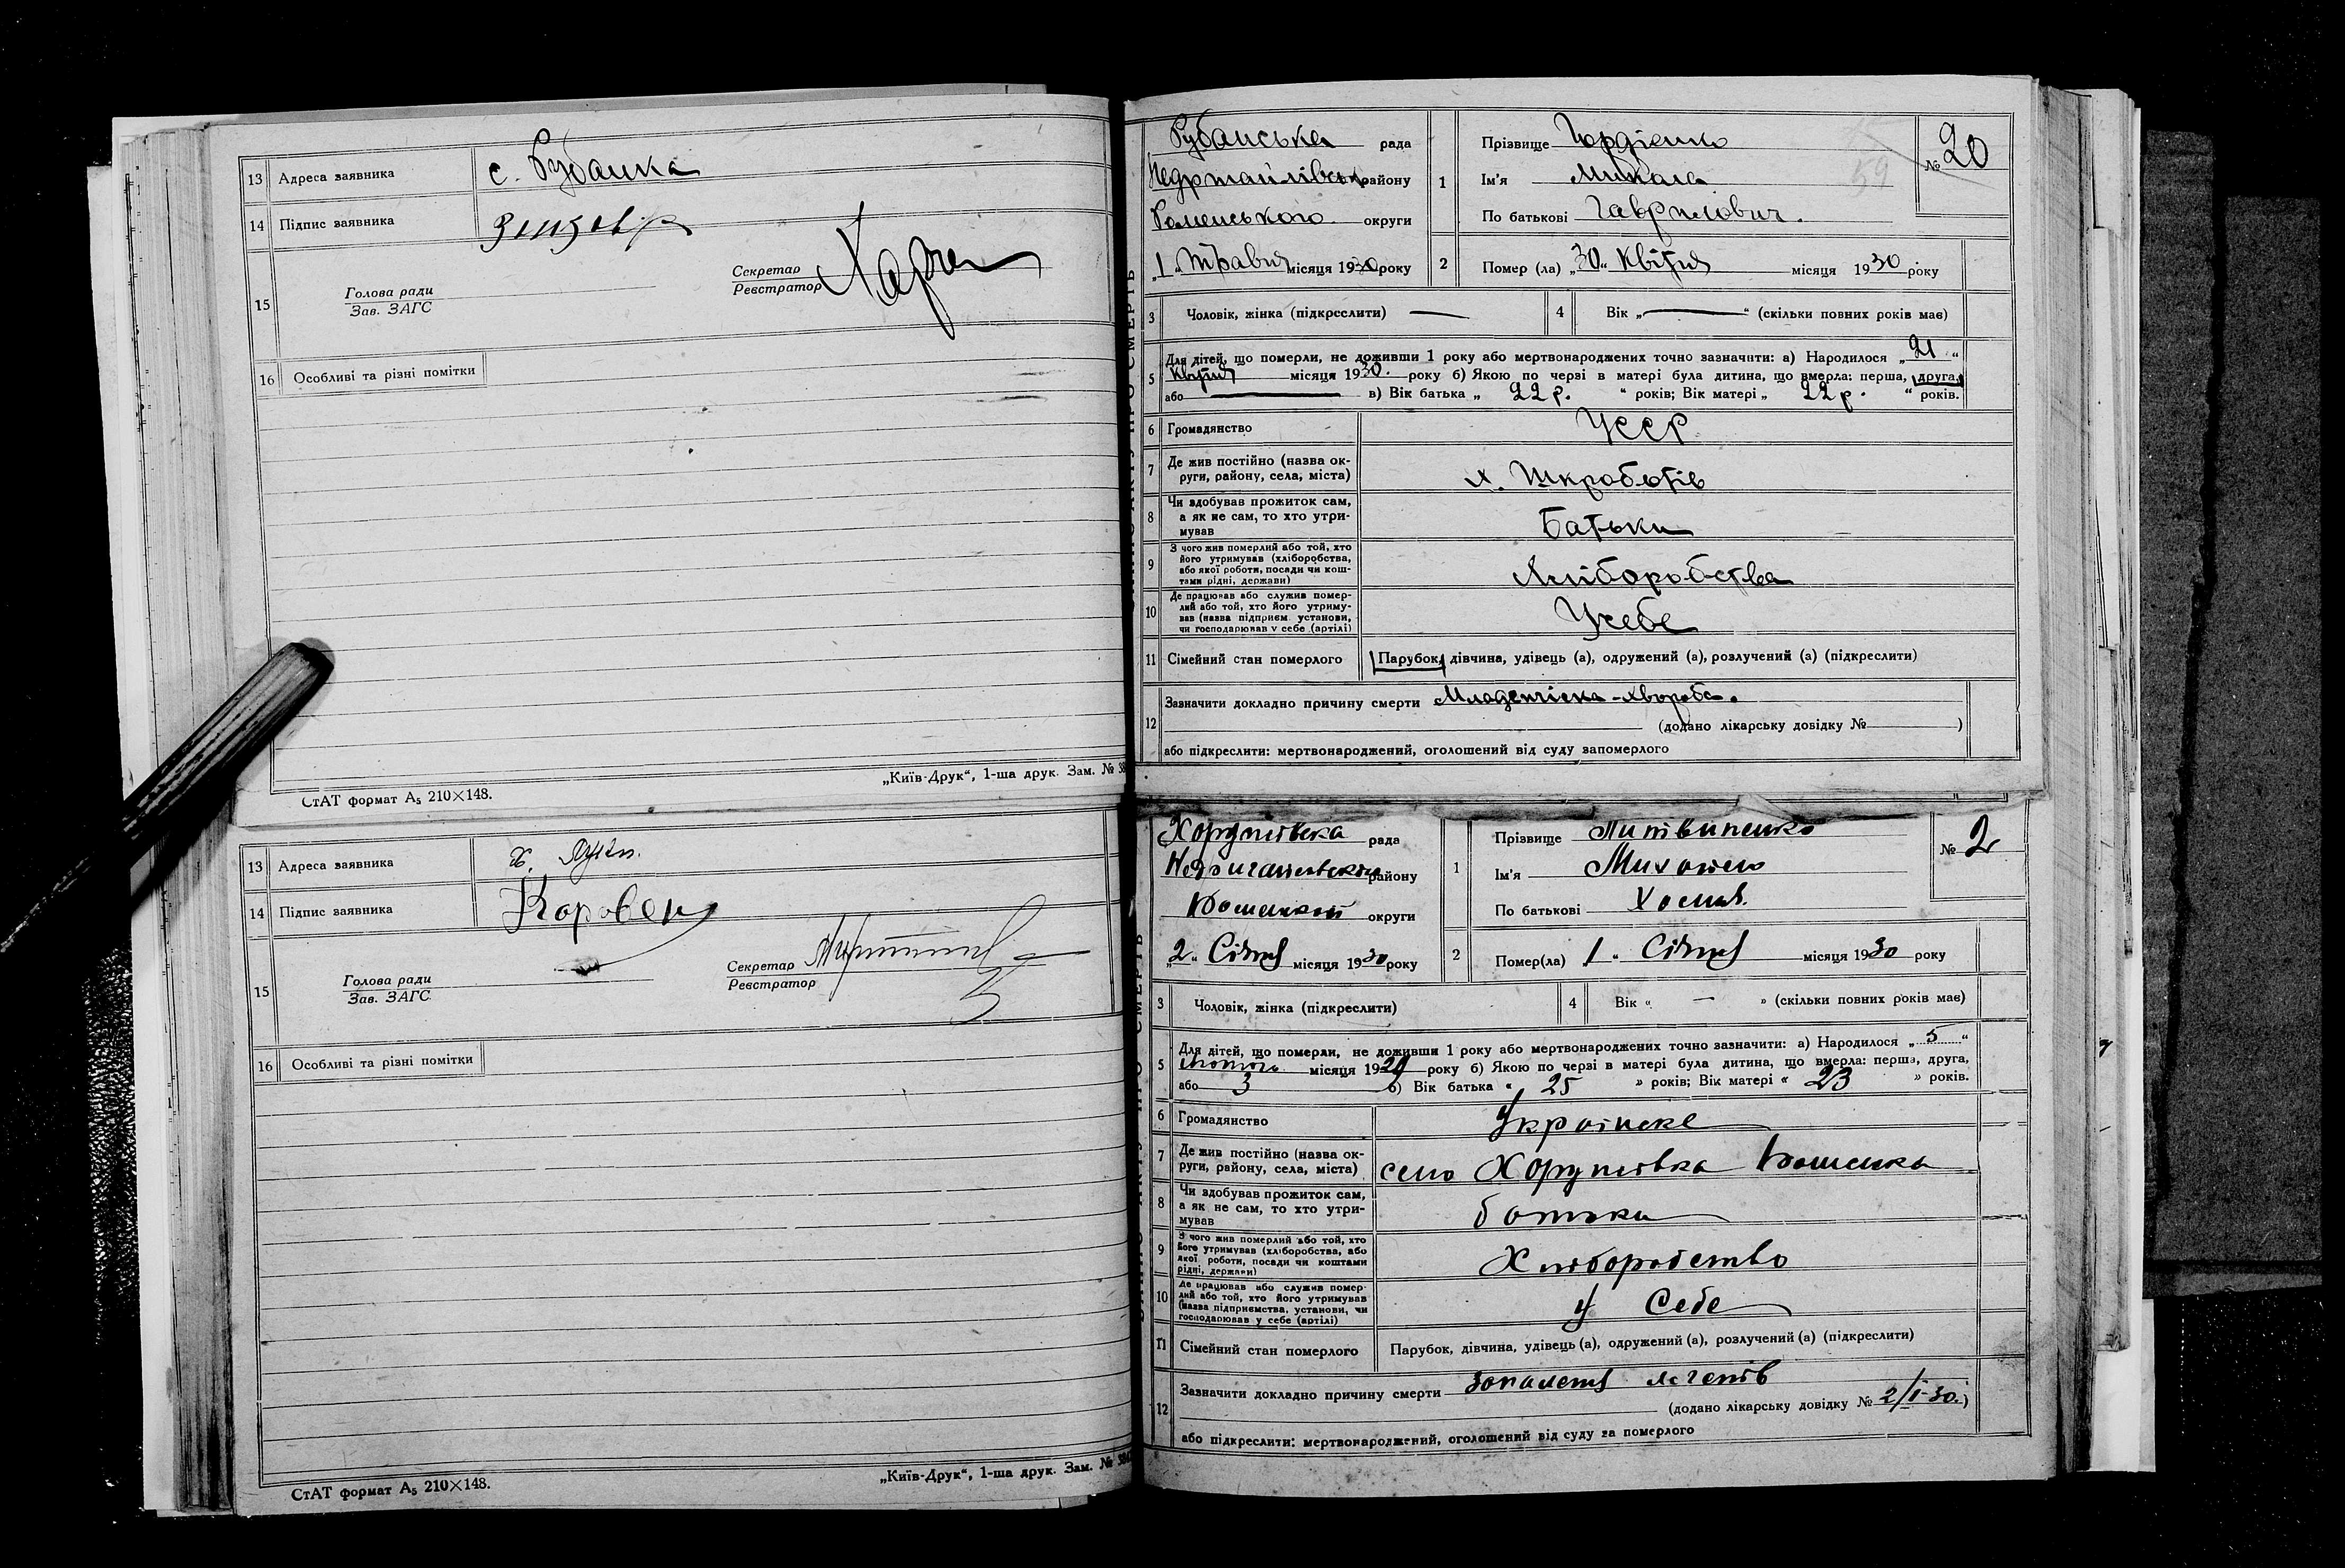 13 Адреса заявника с. Рубанка
14 Підпис заявника
15 Голова ради
Зав. ЗАГС
Секретар
Реєстратор
16 Особливі та різні помітки
„Київ-Друк“, 1-ша друк. Зам. №
СтАТ формат А₅ 210×148.
13 Адреса заявника х.
14 Підпис заявника
15 Голова ради
Зав. ЗАГС
Секретар
Реєстратор
16 Особливі та різні помітки
„Київ-Друк“, 1-ша друк. Зам. №
СтАТ формат А₅ 210×148.
Рубанська рада
району
Роменського округи
„1“ травня місяця 1930 року
1 Прізвище Гордієнко
Ім'я Микола
По батькові Гаврилович.
№ 20
59
2 Помер (ла) „30“ квітня місяця 1930 року
3 Чоловік, жінка (підкреслити) —
4 Вік „—“ (скільки повних років має)
5 Для дітей, що померли, не доживши 1 року або мертвонароджених точно зазначити: а) Народилося „21“
квітня місяця 1930. року б) Якою по черзі в матері була дитина, що вмерла: перша, друга,
або — в) Вік батька „ 22 р. “ років; Вік матері „ 22 р. “ років.
6 Громадянство УССР
7 Де жив постійно (назва ок-
руги, району, села, міста) х. Шкроботів
8 Чи здобував прожиток сам,
а як не сам, то хто утри-
мував Батьки
9 З чого жив померлий або той, хто
його утримував (хліборобства,
або якої роботи, посади чи кош-
тами рідні, держави) Хліборобства
10 Де працював або служив помер-
лий або той, хто його утриму-
вав (назва підприєм. установи,
чи господарював у себе (артілі) У себе
11 Сімейний стан померлого Парубок, дівчина, удівець (а), одружений (а), розлучений (а) (підкреслити)
12 Зазначити докладно причину смерти Младенчіска-хвороба.
(додано лікарську довідку № )
або підкреслити: мертвонароджений, оголошений від суду запомерлого
рада
району
округи
„2“ Січня місяця 1930 року
1 Прізвище Литвиненко
Ім'я
По батькові
№ 2
2 Помер(ла) 1 “ Січня місяця 1930 року
3 Чоловік, жінка (підкреслити)
4 Вік « — » (скільки повних років має)
5 Для дітей, що померли, не доживши 1 року або мертвонароджених точно зазначити: а) Народилося „5“
лютого місяця 1929 року б) Якою по черзі в матері була дитина, що вмерла: перша, друга,
або 3 в) Вік батька « 25 » років; Вік матері « 23 » років.
6 Громадянство Украінске
7 Де жив постійно (назва ок-
руги, району, села, міста) село
8 Чи здобував прожиток сам,
а як не сам, то хто утри-
мував батьки
9 З чого жив померлий або той, хто
його утримував (хліборобства, або
якої роботи, посади чи коштами
рідні, держави) Хліборобство
10 Де працював або служив помер-
лий або той, хто його утримував
(назва підприємства, установи, чи
господарював у себе (артілі) У Себе
11 Сімейний стан померлого Парубок, дівчина, удівець (а), одружений (а), розлучений (а) (підкреслити)
12 Зазначити докладно причину смерти Запаленя легенів
(додано лікарську довідку № 2/I-30.)
або підкреслити: мертвонароджений, оголошений від суду за померлого